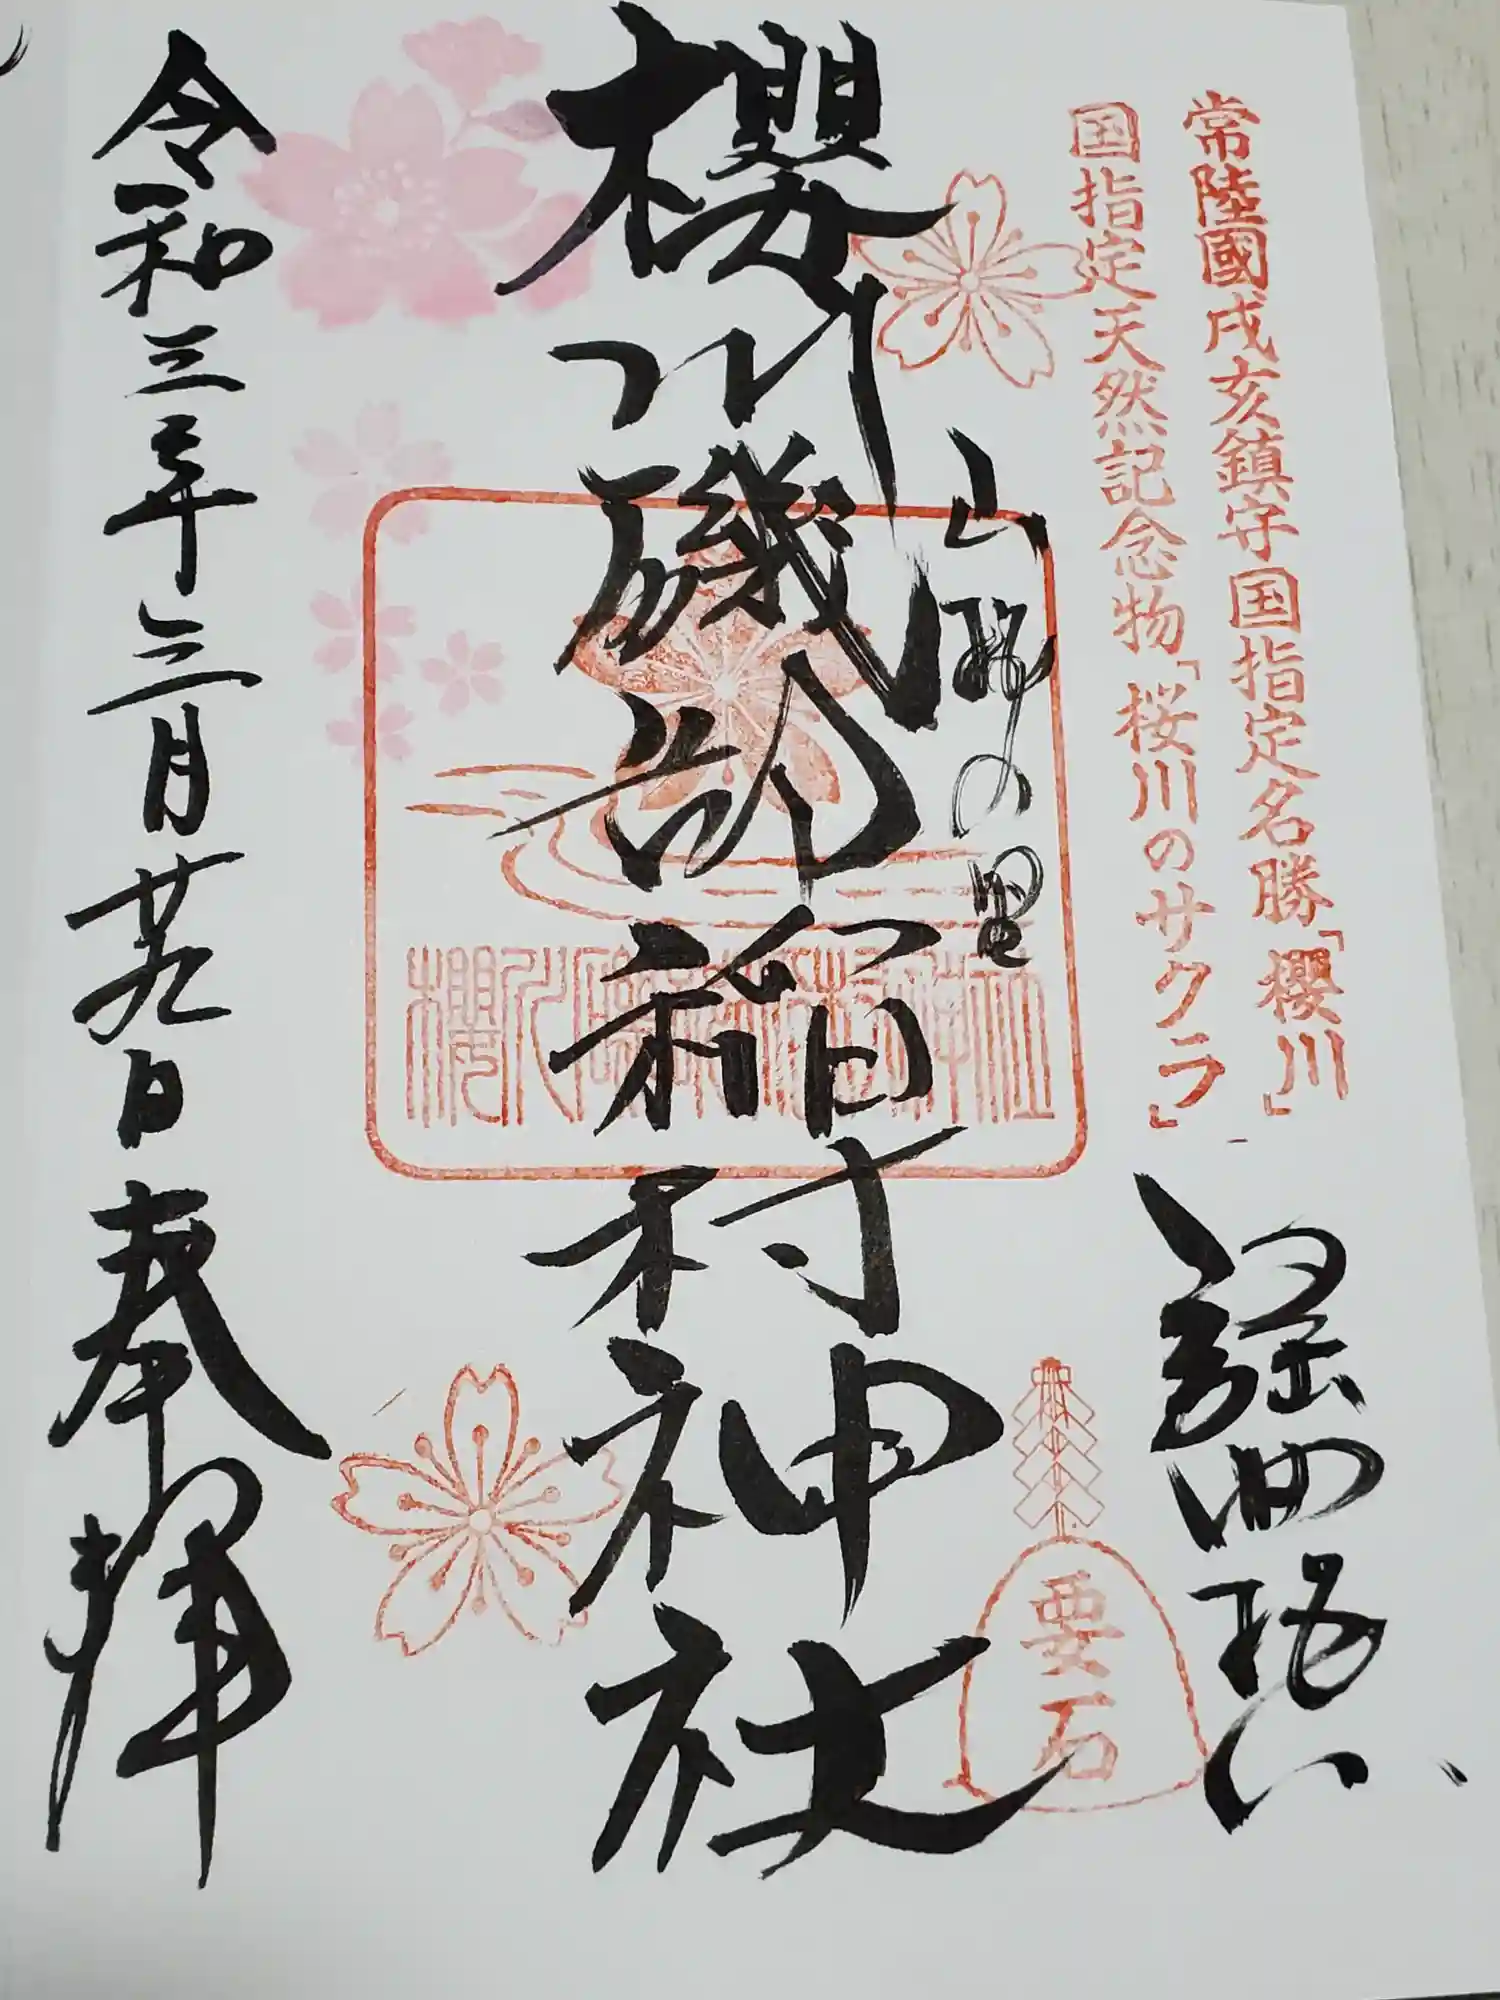 常陸國戌亥鎮守国指定名勝「櫻川」
国指定天然記念物「桜川のサクラ」
謡曲
要石
山桜の里
櫻川磯部稲村神社
櫻川磯部稲村神社
令和三年三月廿九日奉拝